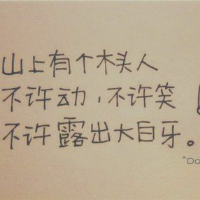 山上有个木头人
不许动，不许笑
不许露出大白牙。
"Do